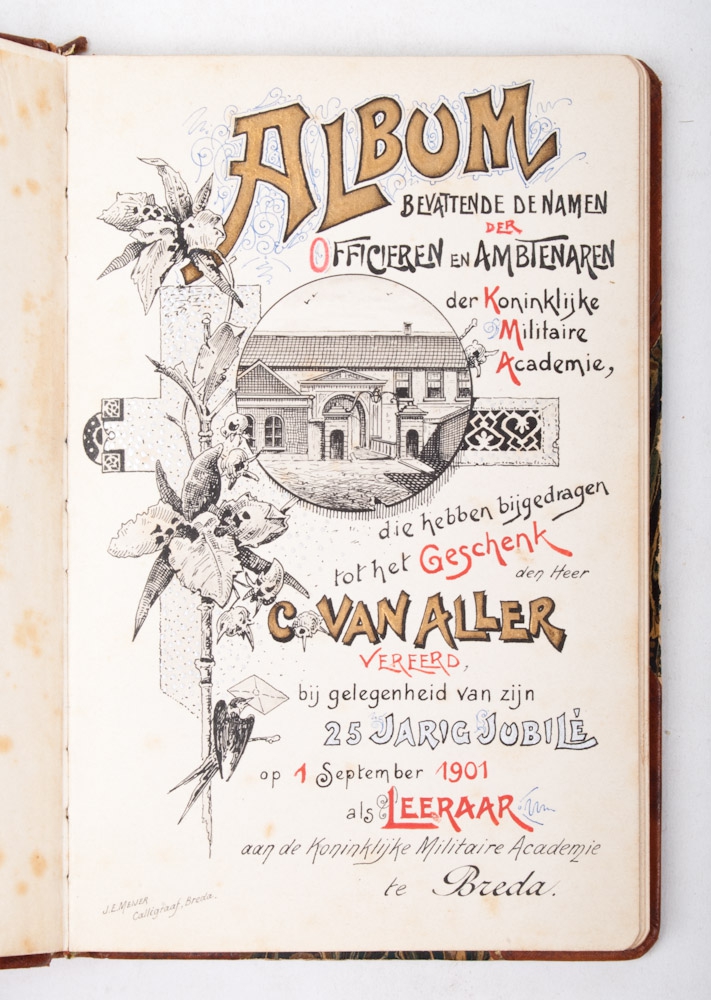 ALBUM
BEVATTENDE DE NAMEN
DER
OFFICIEREN EN AMBTENAREN
der Koninklijke
Militaire
Academie,
die hebben bijgedragen
tot het Geschenk
den Heer
C. VAN ALLER
VEREERD,
bij gelegenheid van zijn
25 JARIG JUBILÉ
op 1 September 1901
als LEERAAR
aan de Koninklijke Militaire Academie
te Breda.
J.E. MEIJER
Calligraaf. Breda.